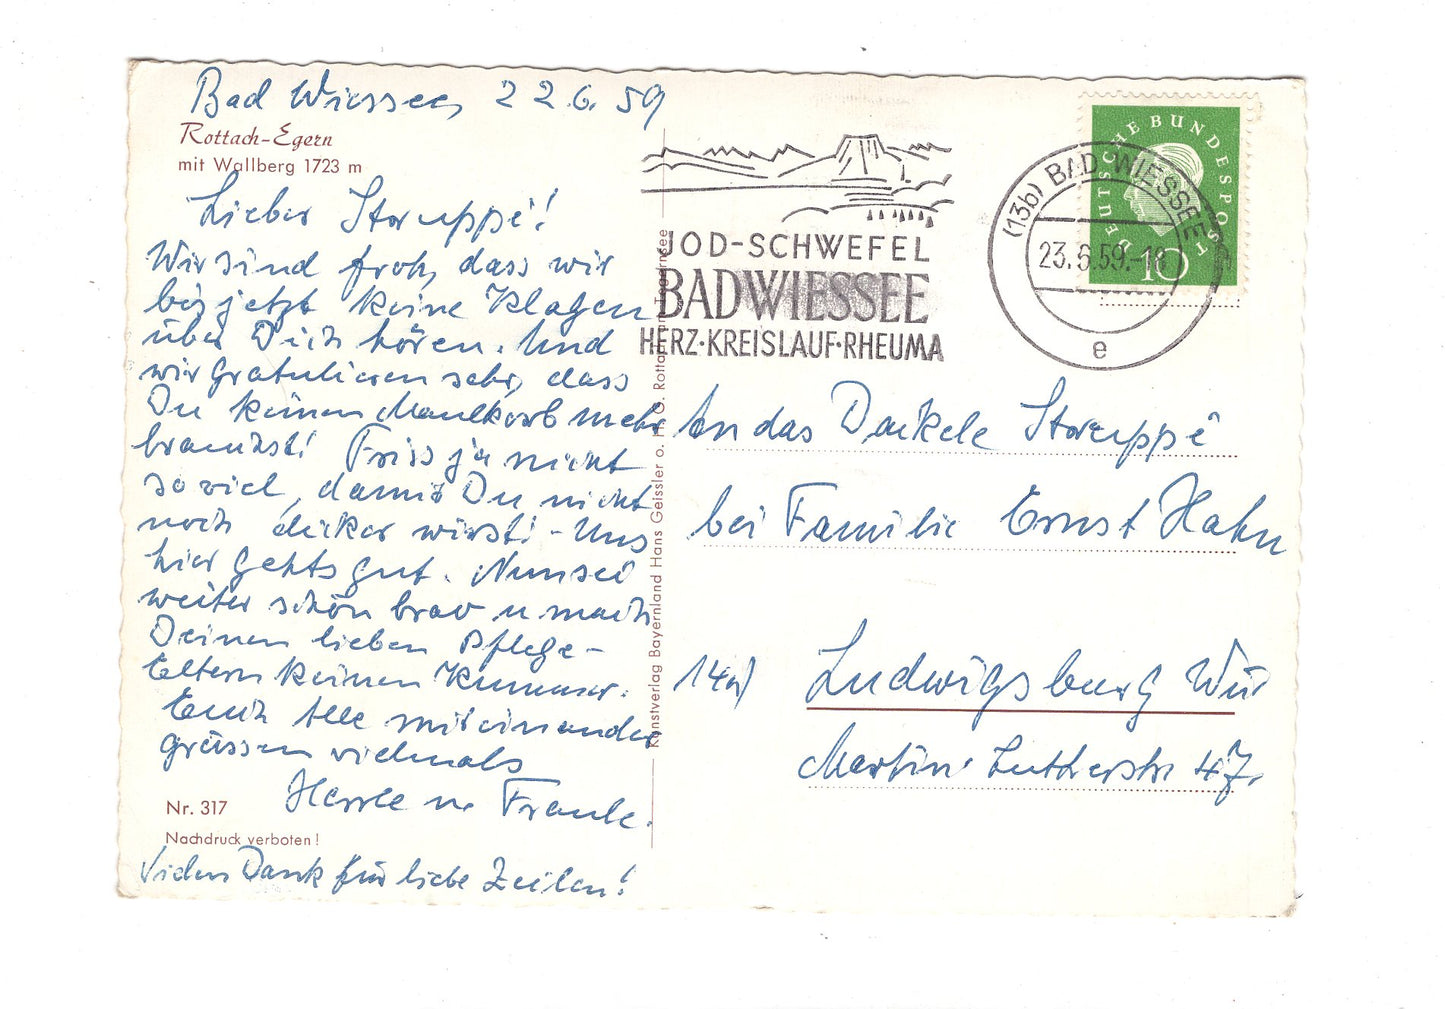 Bad Wiessee, 22.6.59
Rottach-Egern
mit Wallberg 1723 m
Lieber Struppi!
Wir sind froh, dass wir
bis jetzt keine Klagen
über Dich hören. Und
wir gratulieren sehr, dass
Du keinen Maulkorb mehr
brauchst! Friss ja nicht
so viel, damit Du nicht
noch dicker wirst! - Uns
hier gehts gut. Nun sei
weiter schön brav u mach
Deinen lieben Pflege-
Eltern keinen Kummer.
Euch Alle miteinander
grüssen vielmals
Herrle u. Fraule.
Nr. 317
Nachdruck verboten!
Vielen Dank für liebe Zeilen!
Kunstverlag Bayernland Hans Geissler o. H. G. Rottach am Tegernsee
JOD-SCHWEFEL
BAD WIESSEE
HERZ·KREISLAUF·RHEUMA
DEUTSCHE BUNDESPOST
10
(13b) BAD WIESSEE
23.6.59.-18
e
An das Dackele Struppi
bei Familie Ernst Hahn
14a) Ludwigsburg Wür
Martin Lutherstr 47.